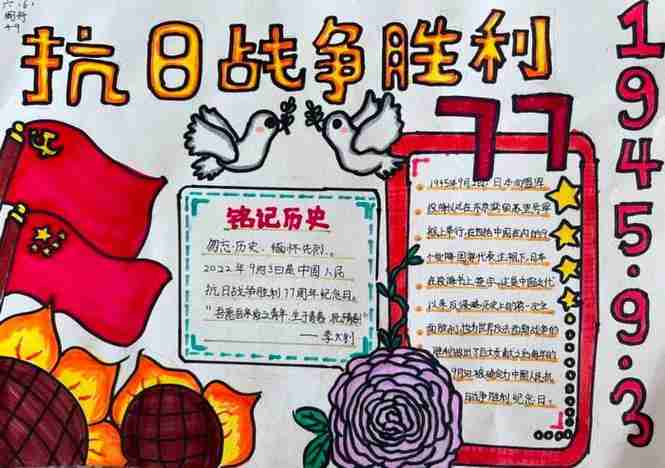 六.(6)
49
抗日战争胜利
77
1945.9.3
铭记历史
勿忘历史、缅怀先烈。
2022年9月3日是中国人民
抗日战争胜利77周年纪念日。
—— 李大钊
1945年9月2日 日本向盟军
投降仪式在东京湾密苏里号军
舰上举行,在包括中国在内的9
个受降国代表注视下,日本
在投降书上签字,这是中国近代
以来反侵略历史上的第一次全
面胜利,也为世界反法西斯战争的
胜利做出了巨大贡献,之后每年的
9月3日,被确定为中国人民抗
日战争胜利纪念日。